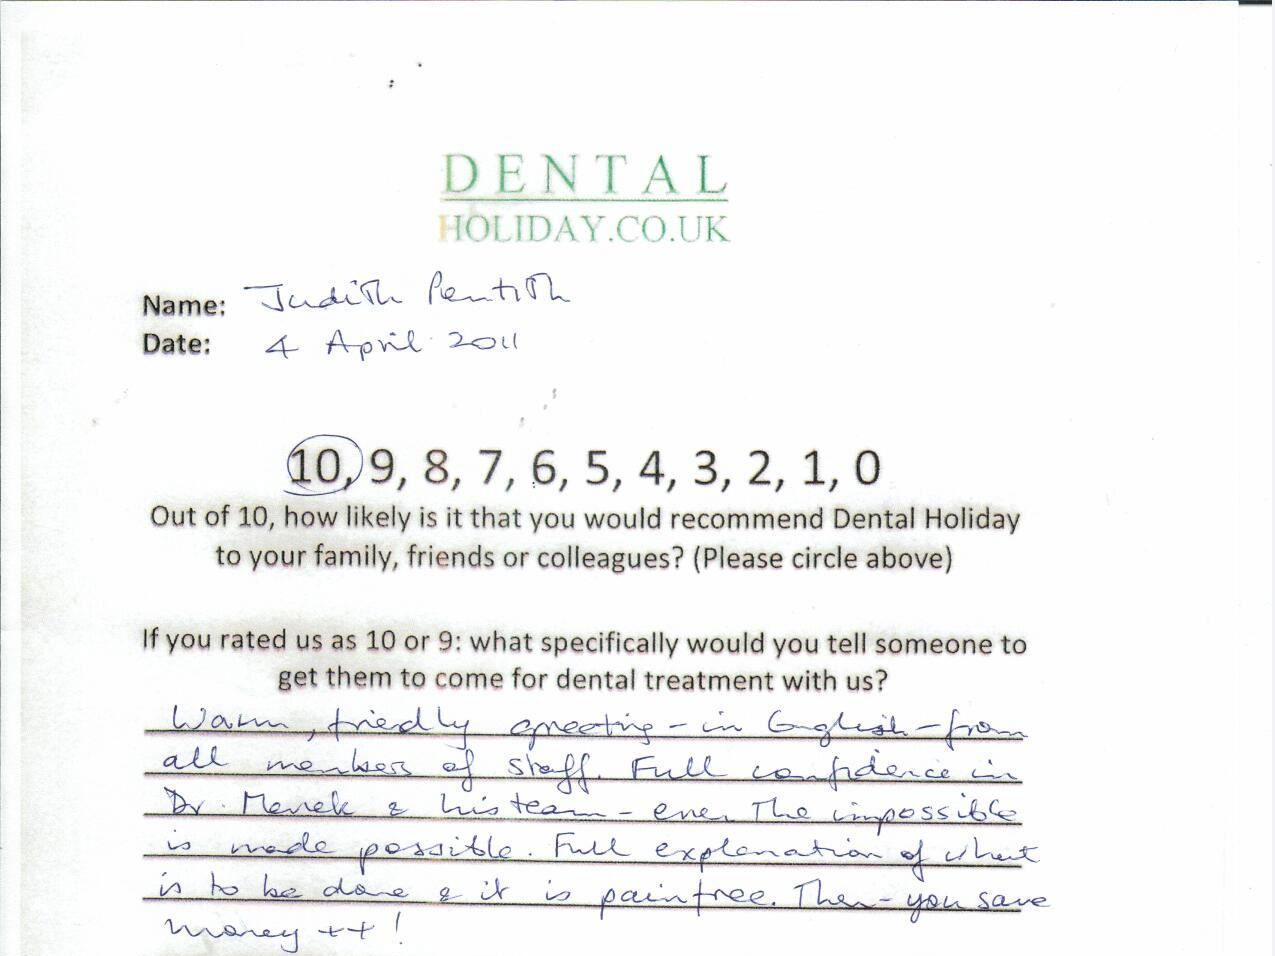 DENTAL
HOLIDAY.CO.UK
Name: Judith Pentith
Date: 4 April 2011
10, 9, 8, 7, 6, 5, 4, 3, 2, 1, 0
Out of 10, how likely is it that you would recommend Dental Holiday
to your family, friends or colleagues? (Please circle above)
If you rated us as 10 or 9: what specifically would you tell someone to
get them to come for dental treatment with us?
Warm, friedly greeting - in English - from
all members of staff. Full confidence in
Dr. Marek & his team - even the impossible
is made possible. Full explanation of what
is to be done & it is painfree. Then - you save
money ++ !